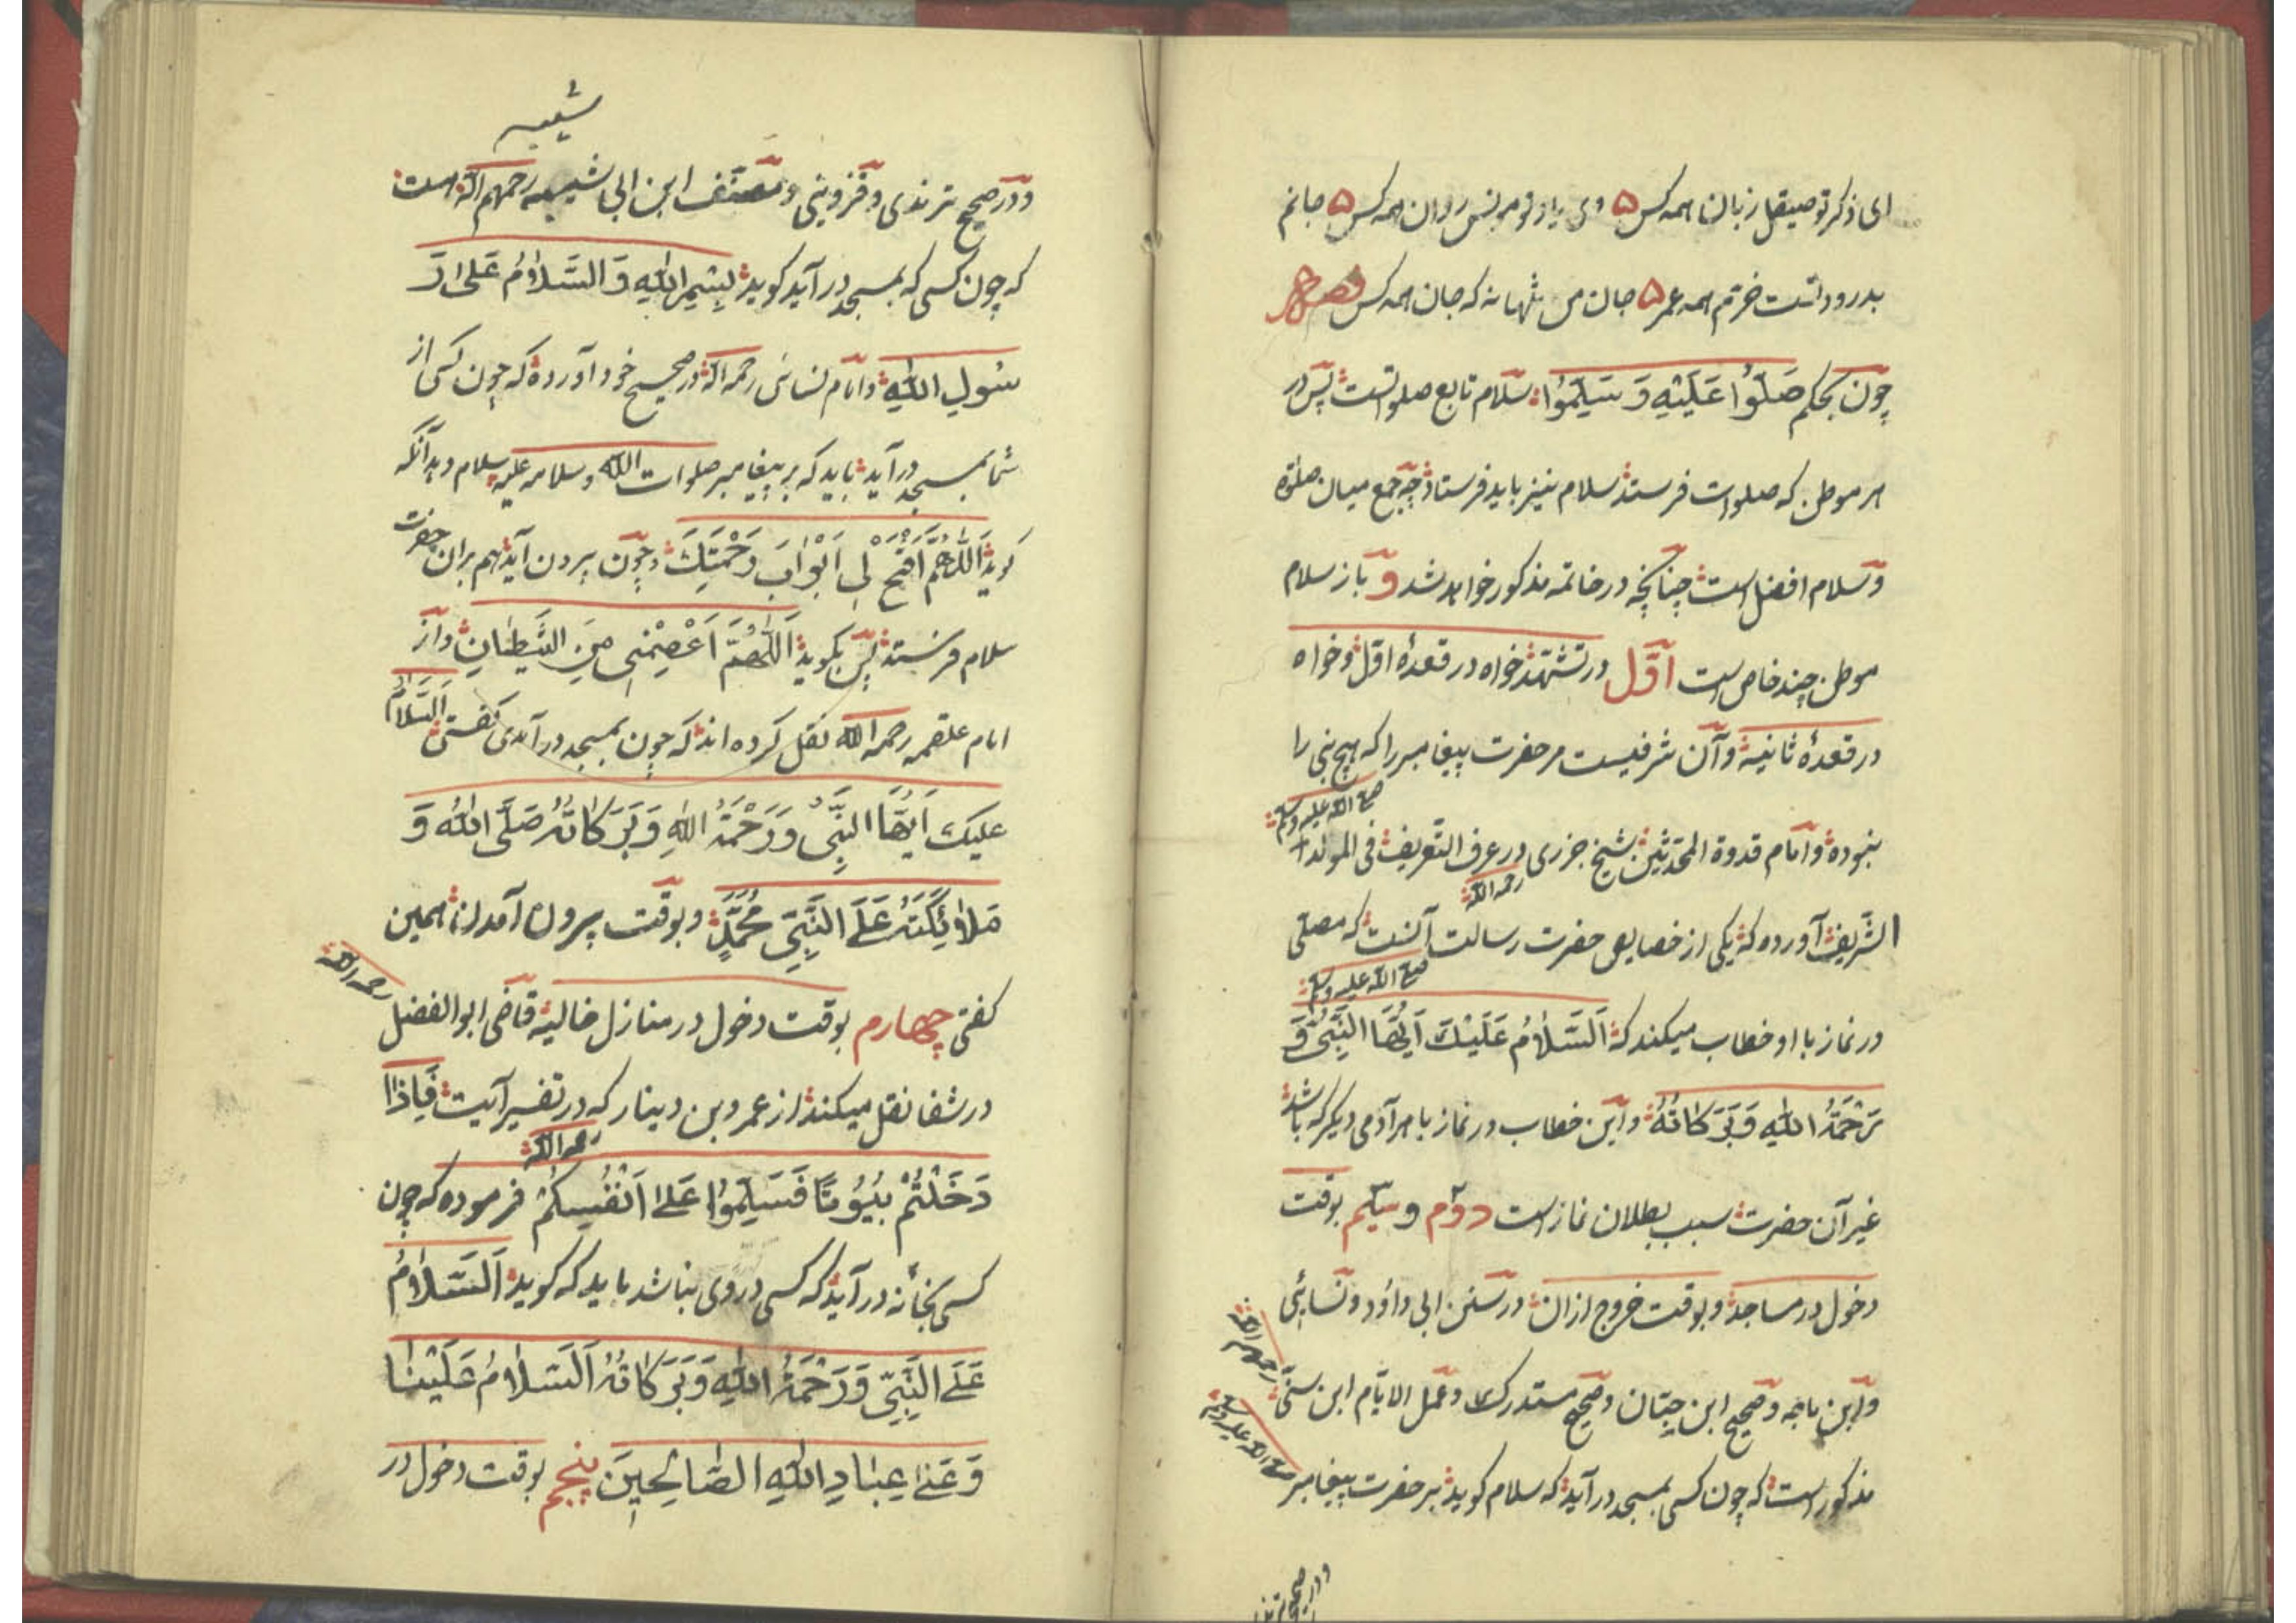 ای ذکر تو صیقل زبان همه کس ۵ وی یاد تو مونس روان همه کس ۵ جانم
بدرود اتست خرتم همه عمر ۵ جان من تنها نه که جان همه کس فصل
چون بحکم صَلُّوا عَلَيْهِ وَ سَلِّمُوا سلام تابع صلواتست پس در
هر موطن که صلوات فرستند سلام نیز باید فرستاد چه جمع میان صلوٰة
و سلام افضل است چنانچه در خاتمه مذکور خواهد شد و باز سلام
موطن چند خاص است اَوَّل در تشهّد خواه در قعدهٔ اوّل و خواه
در قعدهٔ ثانیه و آن شرفیست مر حضرت پیغامبر را که هیچ نبی را
صلی الله علیه وسلم
نبوده و امام قدوة المحدّثین شیخ جزری در عرف التّعریف فی المولد
رحمه الله
الشّریف آورده که یکی از خصایص حضرت رسالت آنست که مصلّی
صلی الله علیه وسلم
در نماز با او خطاب میکند که اَلسَّلَامُ عَلَيْكَ اَيُّهَا النَّبِيُّ وَ
رَحْمَةُ اللّٰهِ وَ بَرَكَاتُهُ و این خطاب در نماز با هر آدمی دیگر که باشد
غیر آن حضرت سبب بطلان نماز است دوّم و سیّم بوقت
دخول در مساجد و بوقت خروج ازان در سنن ابی داؤد و نسائی
و ابن ماجه و صحیح ابن حبّان و صحیح مستدرک و عمل الایّام ابن سنّی
رحمهم الله
مذکور است که چون کسی بمسجد در آید که سلام کوید بر حضرت پیغامبر
صلی الله علیه وسلم
و در صحیح ترمذ
شیبه
و در صحیح ترمذی و قزوینی و مصنّف ابن ابی شیبه رحمهم الله است
که چون کسی که بمسجد در آید کوید بِسْمِ اللّٰهِ وَ السَّلَامُ عَلٰى رَ
سُولِ اللّٰهِ و امام نسائی رحمه الله در صحیح خود آورده که چون کسی از
شما بمسجد در آید باید که بر پیغامبر صلوات الله و سلامه علیه سلام دهد آنکه
کوید اَللّٰهُمَّ افْتَحْ لِي اَبْوَابَ رَحْمَتِكَ و چون بیرون آید هم بران حضرت
سلام فرستد پس بکوید اَللّٰهُمَّ اَعْصِمْنِي مِنَ الشَّيْطَانِ و از
امام علقمه رحمه الله نقل کرده اند که چون بمسجد در آمدی کفتی اَلسَّلَامُ
عليك اَيُّهَا النَّبِيُّ وَ رَحْمَةُ اللّٰهِ وَ بَرَكَاتُهُ صَلَّى اللّٰهُ وَ
مَلَائِكَتُهُ عَلَى النَّبِيِّ مُحَمَّدٍ و بوقت بیرون آمدن همین
کفتی چهارم بوقت دخول در منازل خالیه قاضی ابو الفضل
رحمه الله
در شفا نقل میکند از عمرو بن دینار که در تفسیر آیت فَاِذَا
رحمه الله
دَخَلْتُمْ بُيُوتًا فَسَلِّمُوا عَلٰى اَنْفُسِكُمْ فرموده که چون
کسی بخانه در آید که کسی در وی نباشد باید که کوید اَلسَّلَامُ
عَلَى النَّبِيِّ وَ رَحْمَةُ اللّٰهِ وَ بَرَكَاتُهُ اَلسَّلَامُ عَلَيْنَا
وَ عَلٰى عِبَادِ اللّٰهِ الصَّالِحِينَ پنجم بوقت دخول در